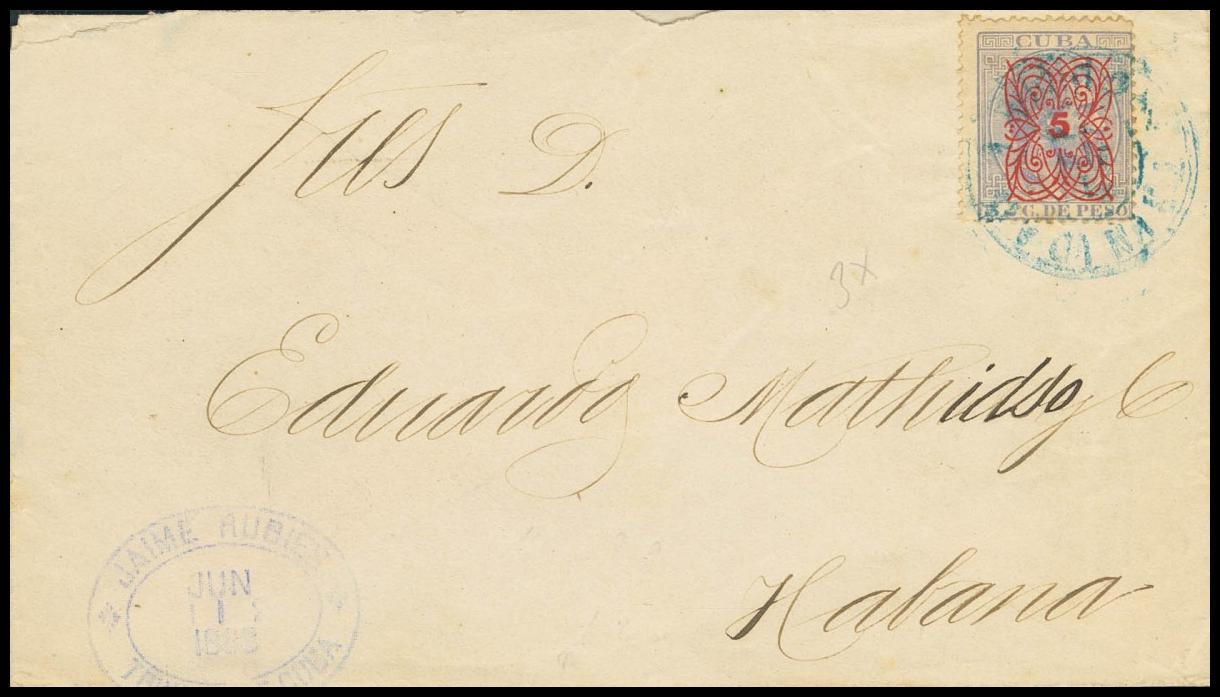 CUBA
5
C. DE PESO
Sres D.
3x
Eduardo Mathidso y C
Habana
JAIME RUBIES
JUN
1
CUBA